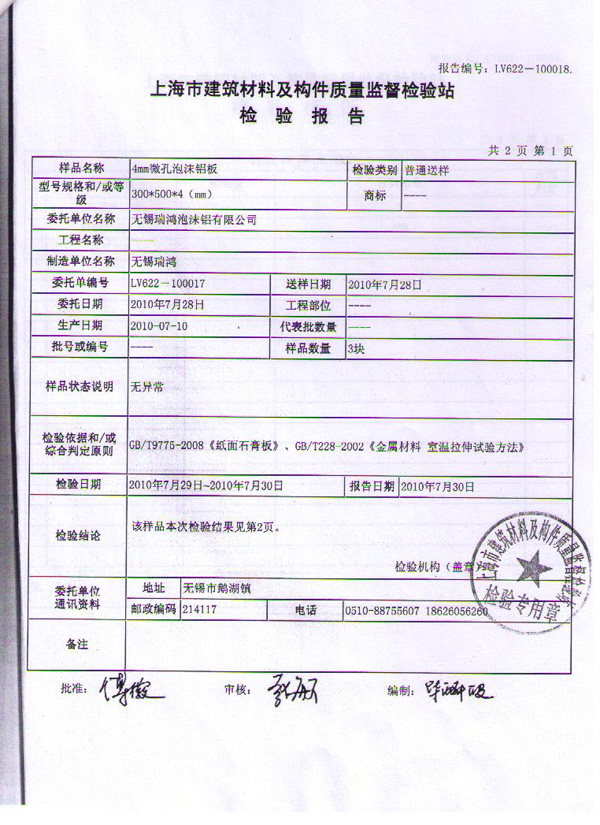 报告编号：LV622－100018.
上海市建筑材料及构件质量监督检验站
检 验 报 告
共 2 页 第 1 页
样品名称 4mm微孔泡沫铝板 检验类别 普通送样
型号规格和/或等级 300*500*4（mm） 商标 ----
委托单位名称 无锡瑞鸿泡沫铝有限公司
工程名称 ----
制造单位名称 无锡瑞鸿
委托单编号 LV622-100017 送样日期 2010年7月28日
委托日期 2010年7月28日 工程部位 ----
生产日期 2010-07-10 代表批数量 ----
批号或编号 ---- 样品数量 3块
样品状态说明 无异常
检验依据和/或
综合判定原则 GB/T9775-2008《纸面石膏板》、GB/T228-2002《金属材料 室温拉伸试验方法》
检验日期 2010年7月29日~2010年7月30日 报告日期 2010年7月30日
检验结论 该样品本次检验结果见第2页。
检验机构（盖章）
上海市建筑材料及构件质量监督检验站
检验专用章
委托单位
通讯资料 地址 无锡市鹅湖镇
邮政编码 214117 电话 0510-88755607 18626056260
备注
批准： 审核： 编制：